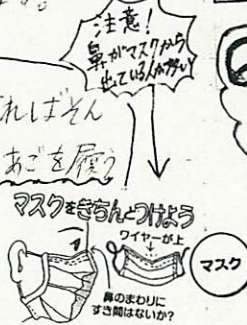 注意！
鼻がマスクから
出ている人が多い
ればそん
あごを
マスクをきちんとつけよう
ワイヤーが上
マスク
鼻のまわりに
すき間はないか？